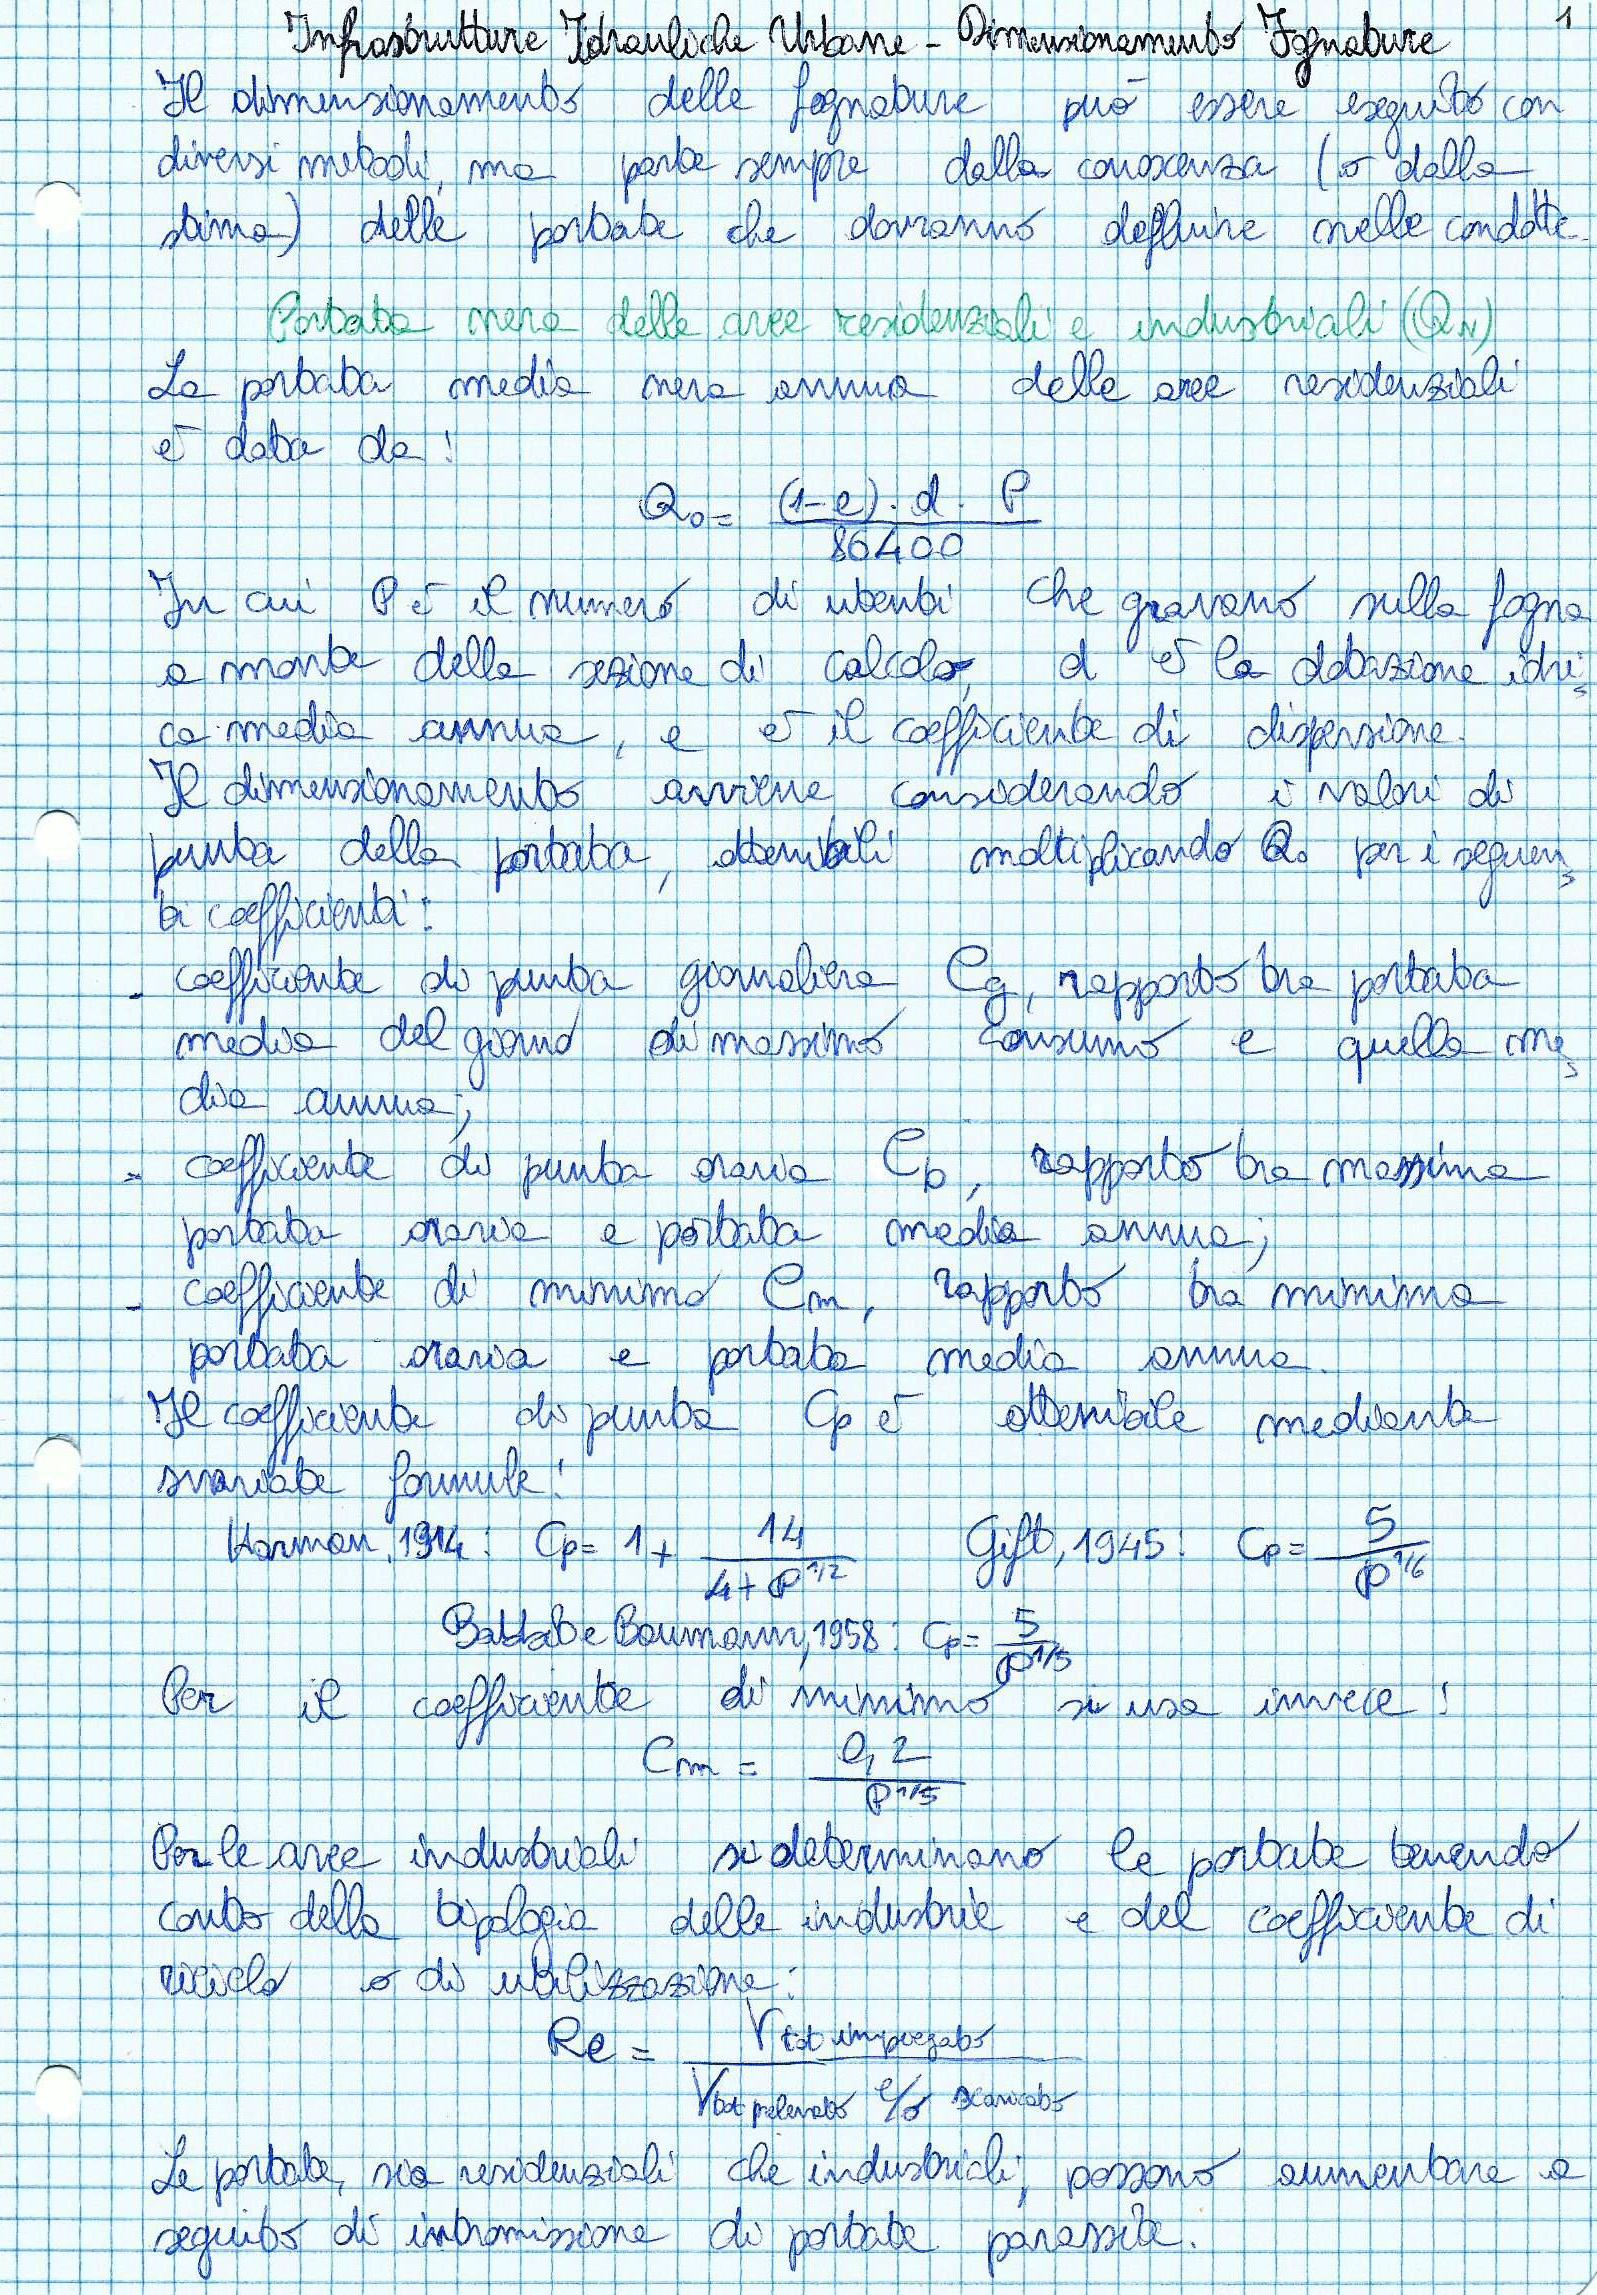 Infrastrutture Idrauliche Urbane - Dimensionamento Fognature 1
Il dimensionamento delle fognature può essere eseguito con
diversi metodi, ma parte sempre dalla conoscenza (o dalla
stima) delle portate che dovranno defluire nelle condotte.
Portata nera delle aree residenziali e industriali (QN)
La portata media nera annua delle aree residenziali
è data da:
Q₀ = (1-e) · d · P / 86400
In cui P è il numero di utenti che gravano sulla fogna
a monte della sezione di calcolo, d è la dotazione idri-
ca media annua, e è il coefficiente di dispersione.
Il dimensionamento avviene considerando i valori di
punta della portata, ottenibili moltiplicando Q₀ per i seguen-
ti coefficienti:
- coefficiente di punta giornaliera Cg, rapporto tra portata
media del giorno di massimo consumo e quella me-
dia annua;
- coefficiente di punta oraria Cp, rapporto tra massima
portata oraria e portata media annua;
- coefficiente di minimo Cm, rapporto tra minima
portata oraria e portata media annua.
Il coefficiente di punta Cp è ottenibile mediante
svariate formule:
Harman, 1914: Cp = 1 + 14 / (4 + P^1/2) Gift, 1945: Cp = 5 / P^1/6
Babbit e Baumann, 1958: Cp = 5 / P^1/5
Per il coefficiente di minimo si usa invece:
Cm = 0,2 / P^1/5
Per le aree industriali si determinano le portate tenendo
conto della tipologia delle industrie e del coefficiente di
riciclo o di utilizzazione:
Re = Vtot impiegato / Vtot prelevato e/o scaricato
Le portate, sia residenziali che industriali, possono aumentare a
seguito di intromissione di portate parassite.